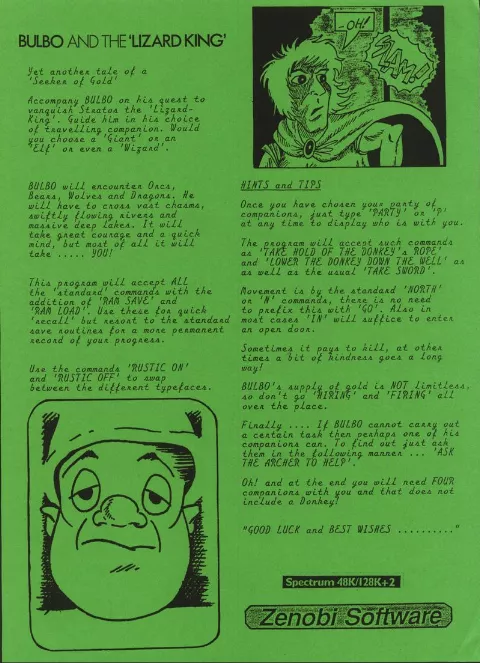 BULBO AND THE 'LIZARD KING'
Yet another tale of a
'Seeker of Gold'
Accompany BULBO on his quest to
vanquish Stratos the 'Lizard-
King'. Guide him in his choice
of travelling companion. Would
you choose a 'Giant' or an
'Elf' or even a 'Wizard'.
BULBO will encounter Orcs,
Bears, Wolves and Dragons. He
will have to cross vast chasms,
swiftly flowing rivers and
massive deep lakes. It will
take great courage and a quick
mind, but most of all it will
take ..... YOU!
This program will accept ALL
the 'standard' commands with the
addition of 'RAM SAVE' and
'RAM LOAD'. Use these for quick
'recall' but resort to the standard
save routines for a more permanent
record of your progress.
Use the commands 'RUSTIC ON'
and 'RUSTIC OFF' to swap
between the different typefaces.
-OH!
SLAM!
HINTS and TIPS
Once you have chosen your party of
companions, just type 'PARTY' or 'P'
at any time to display who is with you.
The program will accept such commands
as 'TAKE HOLD OF THE DONKEY'S ROPE'
and 'LOWER THE DONKEY DOWN THE WELL' as
as well as the usual 'TAKE SWORD'.
Movement is by the standard 'NORTH'
or 'N' commands, there is no need
to prefix this with 'GO'. Also in
most cases 'IN' will suffice to enter
an open door.
Sometimes it pays to kill, at other
times a bit of kindness goes a long
way!
BULBO's supply of gold is NOT limitless,
so don't go 'HIRING' and 'FIRING' all
over the place.
Finally .... If BULBO cannot carry out
a certain task then perhaps one of his
companions can. To find out just ask
them in the following manner ... 'ASK
THE ARCHER TO HELP'.
Oh! and at the end you will need FOUR
companions with you and that does not
include a Donkey!
"GOOD LUCK and BEST WISHES .........."
Spectrum 48K/128K+2
Zenobi Software